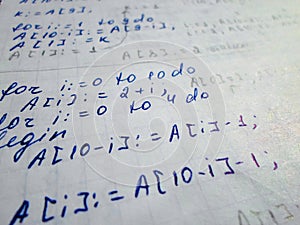 k:=A[9];
for i:=1 to 9 do
A[10-i]:=A[9-i];
A[1]:=k
A[1]:=1
for i:=0 to 10 do
A[i]:=2+i;
for i:=0 to 4 do
begin
A[10-i]:=A[i]-1;
A[i]:=A[10-i]-1;